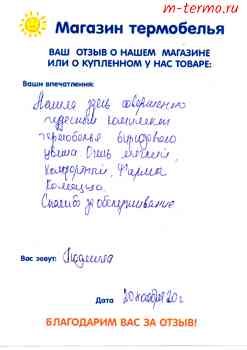 m-termo.ru
Магазин термобелья
ВАШ ОТЗЫВ О НАШЕМ МАГАЗИНЕ
ИЛИ О КУПЛЕННОМ У НАС ТОВАРЕ:
Ваши впечатления:
Нашла здесь совершенно
чудесный комплект
термобелья бирюзового
цвета. Очень мягкий,
комфортный. Фирма
Спасибо за обслуживание
Вас зовут: Людмила
Дата 20 ноября 20 г.
БЛАГОДАРИМ ВАС ЗА ОТЗЫВ!